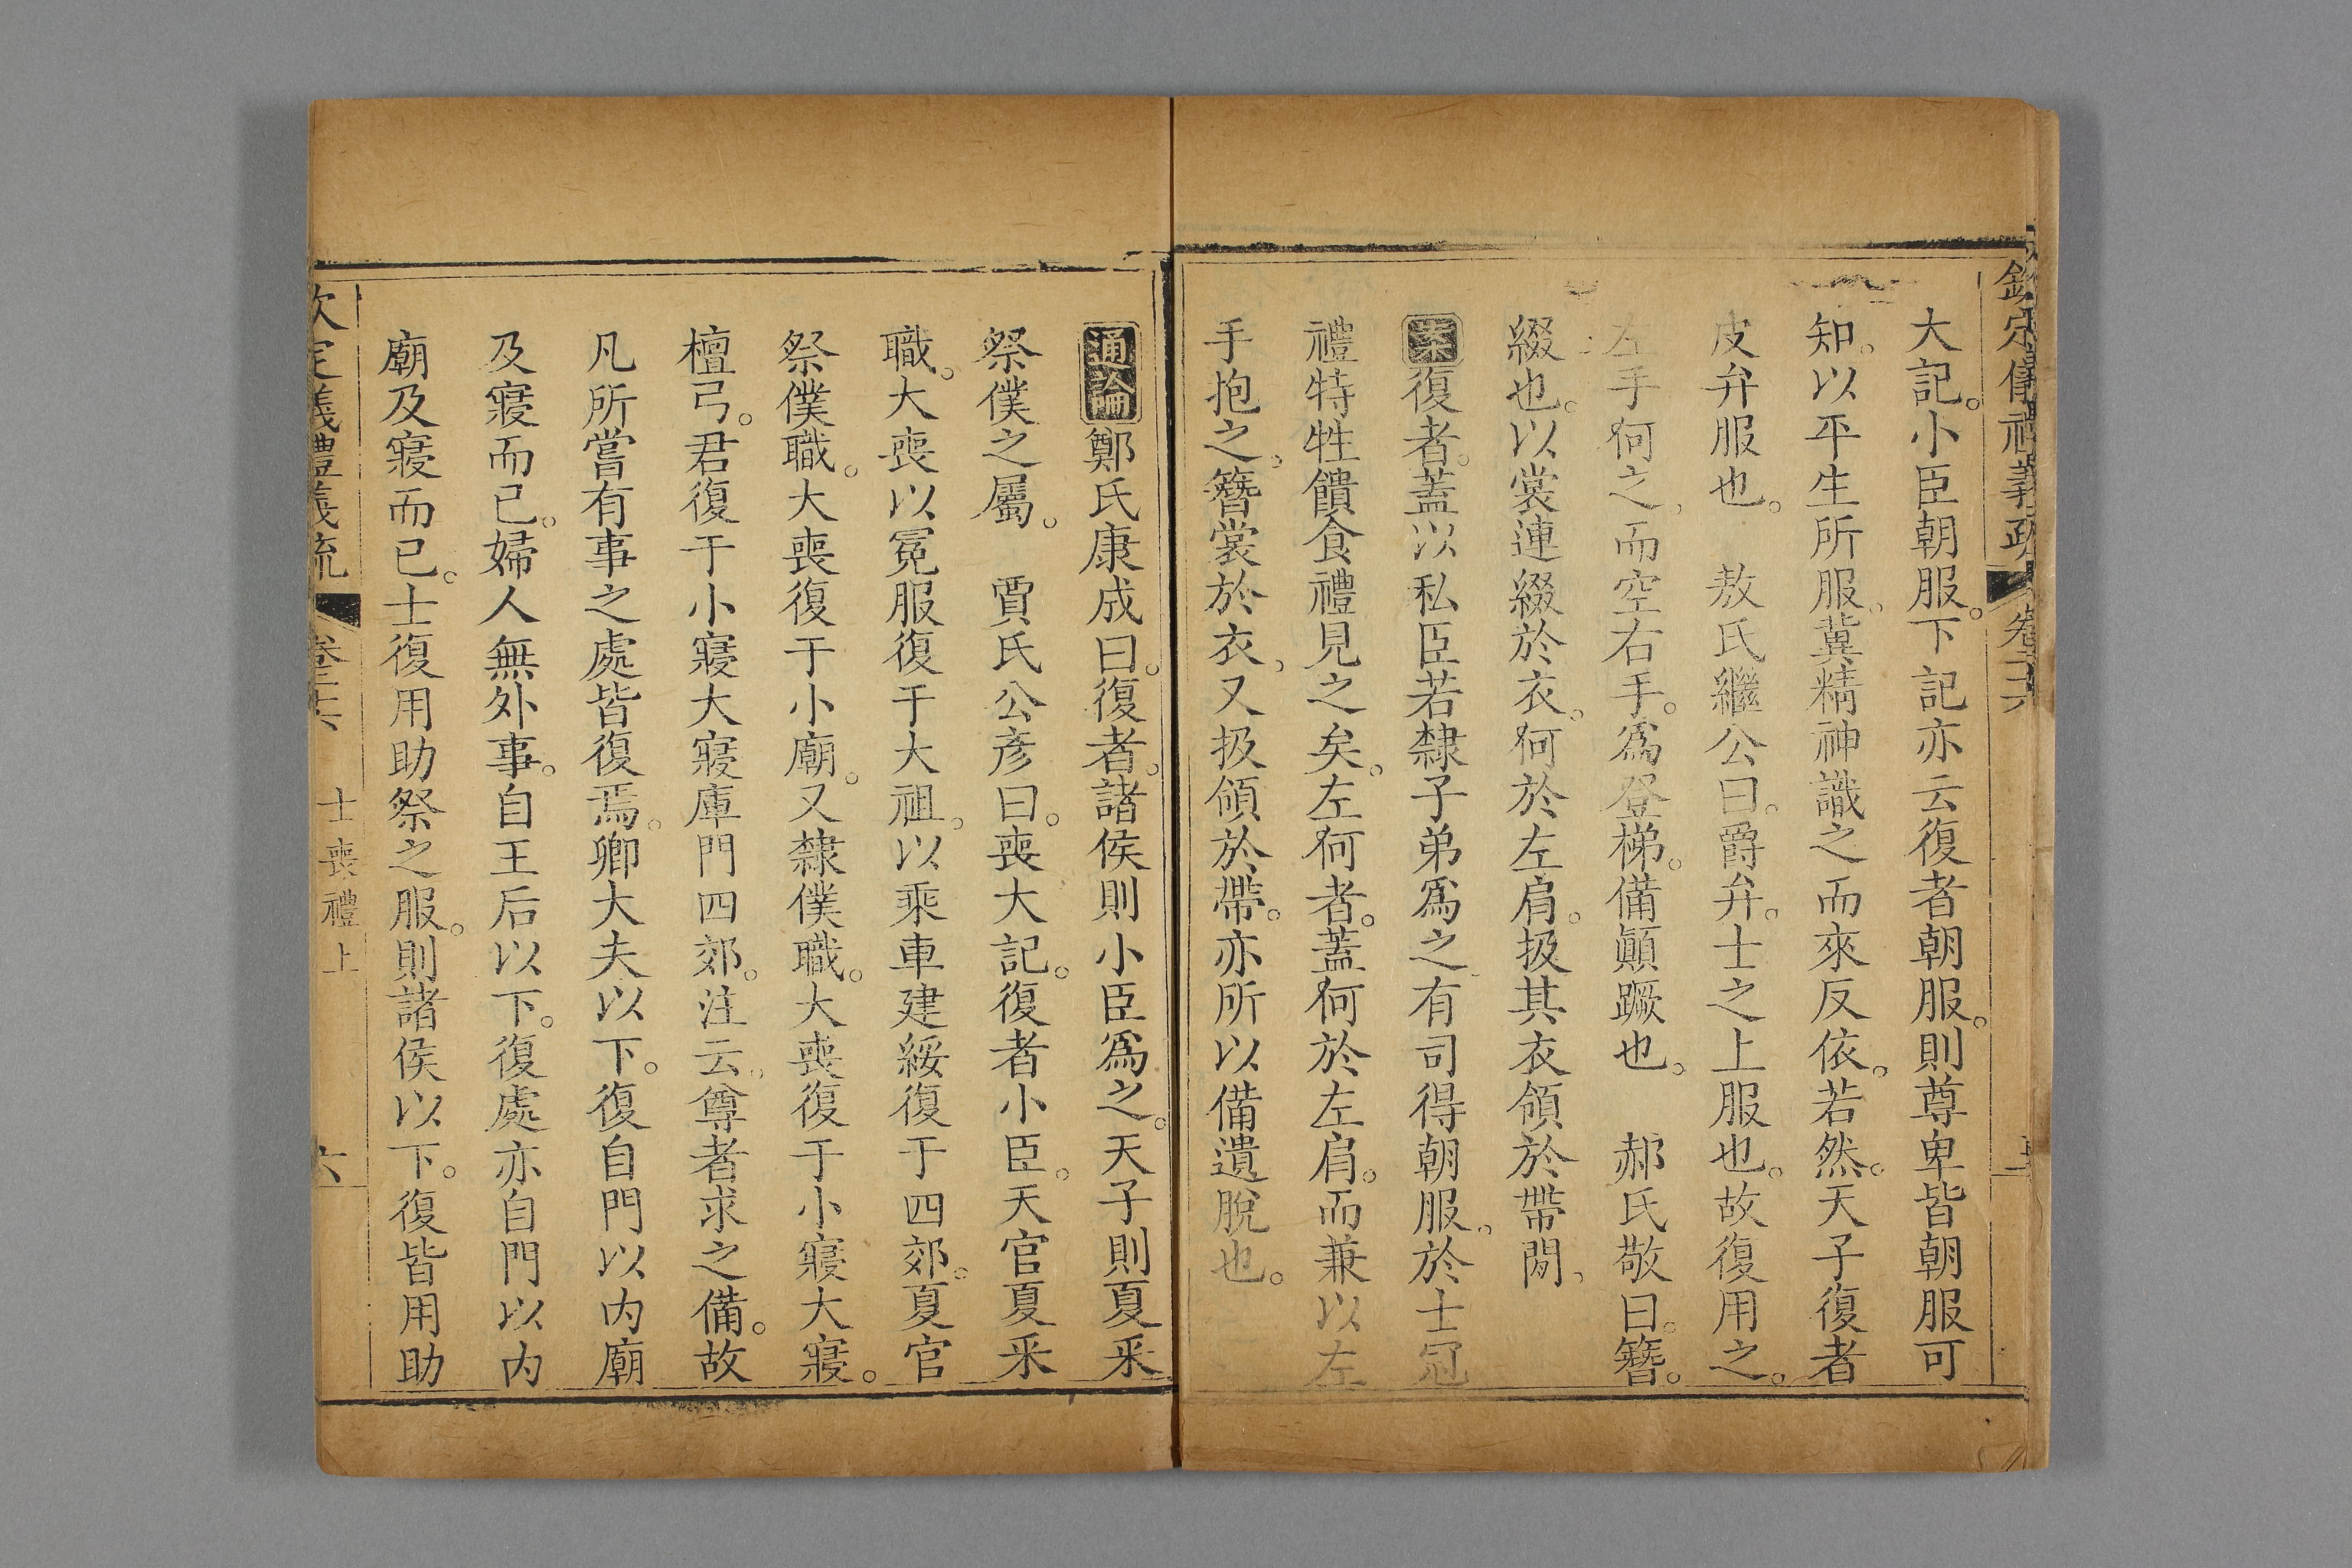 欽定儀禮義疏 卷二十六
大記。小臣朝服。下記亦云復者朝服。則尊卑皆朝服可
知。以平生所服、冀精神識之而來反依。若然。天子復者
皮弁服也。　敖氏繼公曰。爵弁。士之上服也。故復用之。
左手何之、而空右手。爲登梯。備顚蹶也。　郝氏敬曰。簪。
綴也。以裳連綴於衣。何於左肩。扱其衣領於帶閒、
案復者。蓋以私臣若隸子弟爲之、有司得朝服、於士冠
禮特牲饋食禮見之矣。左何者。蓋何於左肩。而兼以左
手抱之、簪裳於衣、又扱領於帶。亦所以備遺脫也。
通論鄭氏康成曰。復者。諸侯則小臣爲之。天子則夏采
祭僕之屬。　賈氏公彥曰。喪大記。復者小臣。天官夏采
職。大喪以冕服復于大祖。以乘車建綏復于四郊。夏官
祭僕職。大喪復于小廟。又隸僕職。大喪復于小寢大寢。
檀弓。君復于小寢大寢庫門四郊。注云、尊者求之備。故
凡所嘗有事之處皆復焉。卿大夫以下。復自門以内廟
及寢而已。婦人無外事。自王后以下。復處亦自門以内
廟及寢而已。士復用助祭之服。則諸侯以下。復皆用助
欽定儀禮義疏 卷二十六 士喪禮上 六